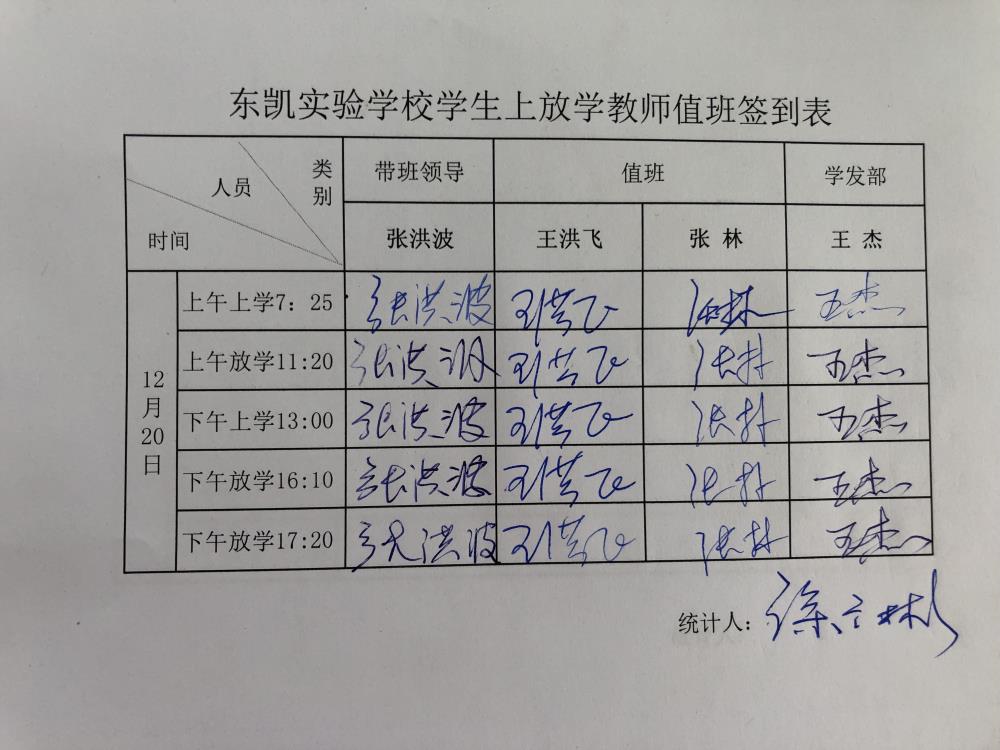 东凯实验学校学生上放学教师值班签到表
类别 人员 时间 带班领导 值班 学发部
张洪波 王洪飞 张 林 王 杰
12月20日
上午上学7：25 张洪波 王洪飞 张林 王杰
上午放学11:20 张洪波 王洪飞 张林 王杰
下午上学13:00 张洪波 王洪飞 张林 王杰
下午放学16:10 张洪波 王洪飞 张林 王杰
下午放学17:20 张洪波 王洪飞 张林 王杰
统计人：